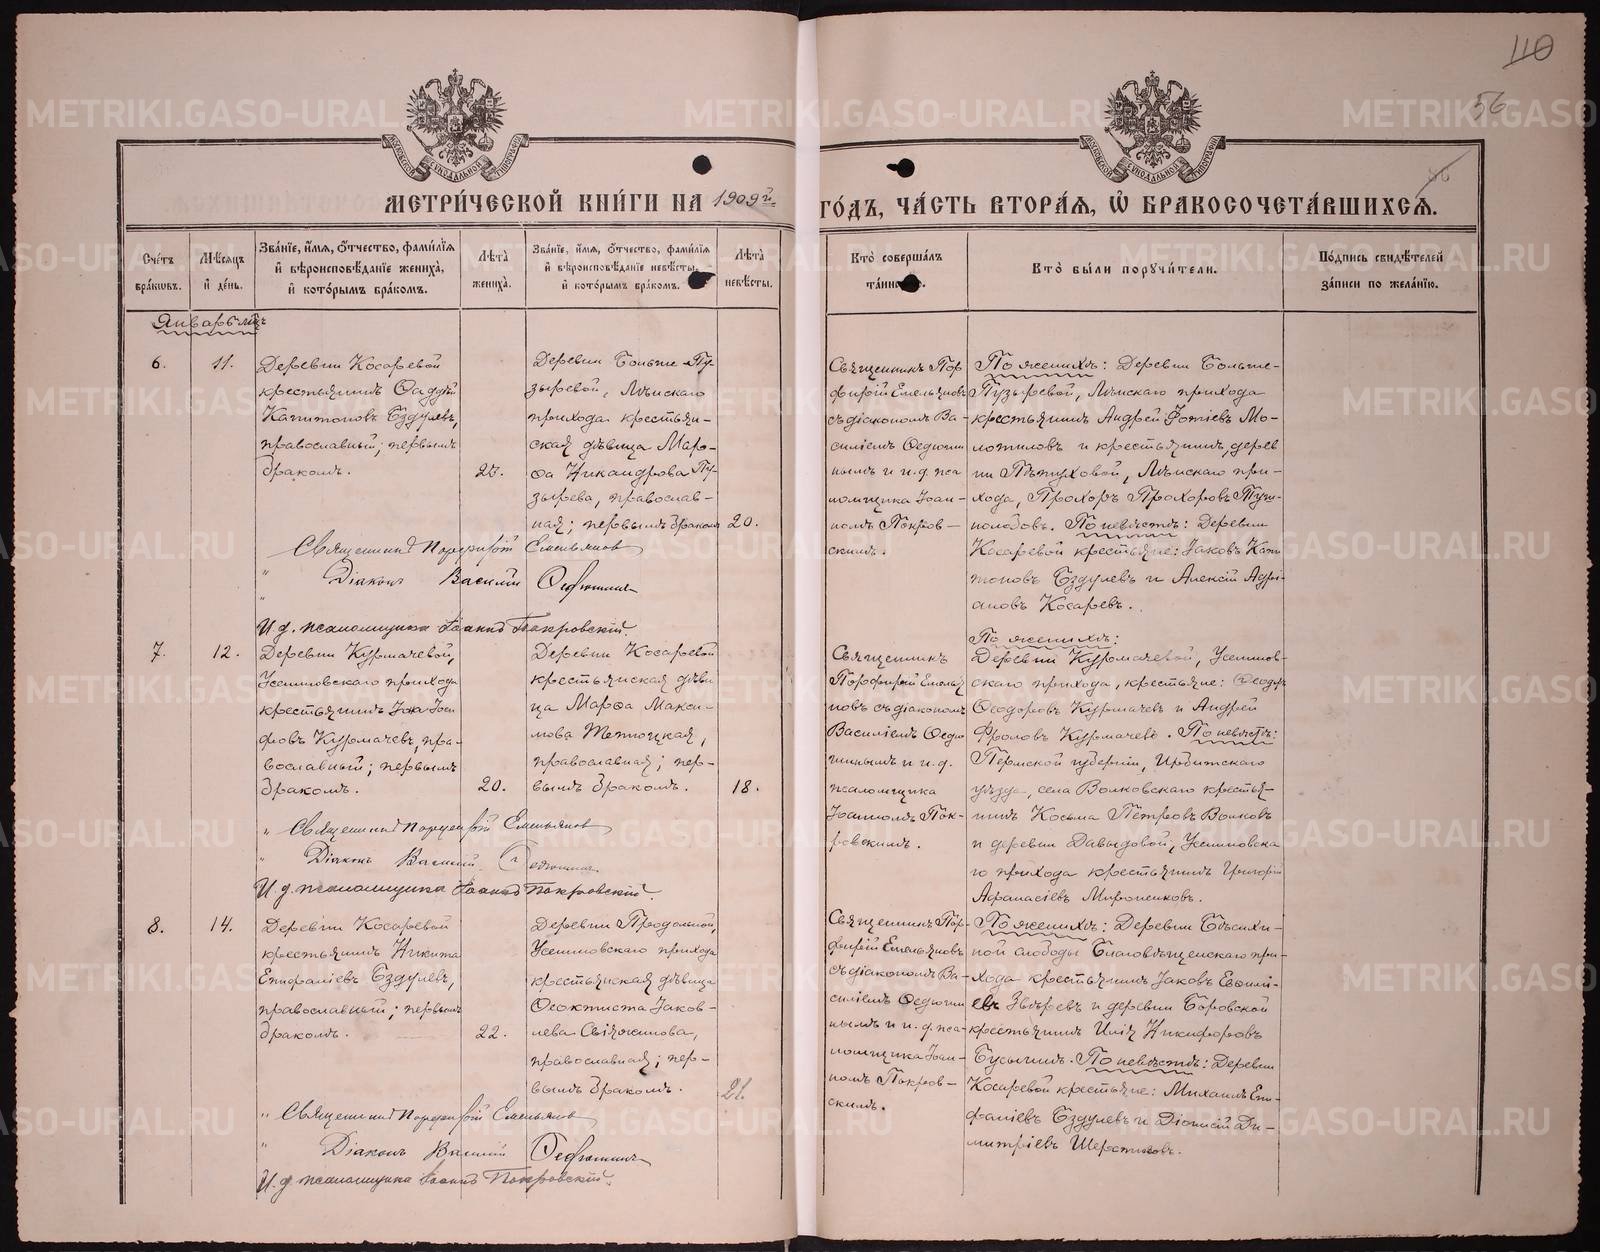 110
56
МЕТРИ́ЧЕСКОЙ КНИ́ГИ НА 1909й ГО́ДЪ, ЧА́СТЬ ВТОРА́Я, Ѡ БРАКОСОЧЕТА́ВШИХСЯ.
Сче́тъ бра́кѡвъ.
Мѣ́сяцъ и҆ де́нь.
Зва́нїе, и҆́мя, ѻ҆́тчество, фамилїя
и҆ вѣроисповѣ́данїе жениха̀,
и҆ кото́рымъ бра́комъ.
Лѣ́та жениха̀.
Зва́нїе, и҆́мя, ѻ҆́тчество, фамилїя
и҆ вѣроисповѣ́данїе невѣ́сты,
и҆ кото́рымъ бра́комъ.
Лѣ́та невѣ́сты.
Кто̀ соверша́лъ
Кто̀ бы́ли порꙋчи́тели.
По́дпись свидѣ́телей
за́писи по жела́нїю.
Январь мцъ
6.
11.
Деревни Косаревой
крестьянинъ Фаддей
Капитоновъ Бздулевъ,
православный; первымъ
бракомъ.
23.
Деревни Больше-Пу-
зыревой,
прихода крестьян-
ская дѣвица Мар-
ѳа Никандрова Пу-
зырева, православ-
ная; первымъ бракомъ
20.
Священникъ Пор-
фирій Емельяновъ
съ діакономъ Ва-
силіемъ Федюши-
нымъ и и. д. пса-
ломщика Іоан-
номъ Покров-
скимъ.
По женихѣ: Деревни Больше-
Пузыревой, прихода
крестьянинъ Андрей Фотіевъ Мо-
лотиловъ и крестьянинъ дерев
ни Пѣтуховой, при-
хода, Прохоръ Прохоровъ
По невѣстѣ: Деревни
Косаревой крестьяне: Іаковъ Капи
тоновъ Бздулевъ и Алексій Адрі-
ановъ Косаревъ.
Священникъ Порфирій Емельяновъ
" Діаконъ Василій Федюшинъ
И. д. псаломщика Іоаннъ Покровскій.
7.
12.
Деревни Курмачевой,
Усениновскаго прихода
крестьянинъ Іона Іоси
фовъ Курмачевъ, пра-
вославный; первымъ
бракомъ.
20.
Деревни Косаревой
крестьянская дѣви
ца Марѳа Макси-
мова
православная; пер-
вымъ бракомъ.
18.
Священникъ
Порфирій Емелья
новъ съ діакономъ
Василіемъ Федю
шинымъ и и. д.
псаломщика
Іоанномъ Пок-
ровскимъ.
По женихѣ:
Деревни Курмачевой, Усенинов-
скаго прихода, крестьяне: Ѳеодоръ
Ѳеодоровъ Курмачевъ и Андрей
Фроловъ Курмачевъ. По невѣстѣ:
Пермской губерніи, Ирбитскаго
уѣзда, села Волковскаго крестья-
нинъ Косьма Петровъ Волковъ
и деревни Давыдовой, Усениновска
го прихода крестьянинъ Григорій
Афанасіевъ Миронѣнковъ.
" Священникъ Порфирій Емельяновъ
" Діаконъ Василій Федюшинъ
И. д. псаломщика Іоаннъ Покровскій.
8.
14.
Деревни Косаревой
крестьянинъ Никита
Епифаніевъ Бздулевъ,
православный; первымъ
бракомъ.
22.
Деревни Продольной,
Усениновскаго прихода
крестьянская дѣвица
Ѳеоктиста Іаков-
лева
православная; пер-
вымъ бракомъ.
21.
Священникъ Пор-
фирій Емельяновъ
съ діакономъ Ва-
силіемъ Федюши
нымъ и и. д. пса-
ломщика Іоан-
номъ Покров-
скимъ.
По женихѣ: Деревни
ной слободы Благовѣщенскаго при-
хода крестьянинъ Іаковъ
евъ Звѣревъ и деревни Боровской
крестьянинъ Илія Никифоровъ
Бусыгинъ. По невѣстѣ: Деревни
Косаревой крестьяне: Михаилъ Епи-
фаніевъ Бздулевъ и Діонисій Ди-
митріевъ Шерстниковъ.
" Священникъ Порфирій Емельяновъ
" Діаконъ Василій Федюшинъ
И. д. псаломщика Іоаннъ Покровскій.
METRIKI.GASO-URAL.RU